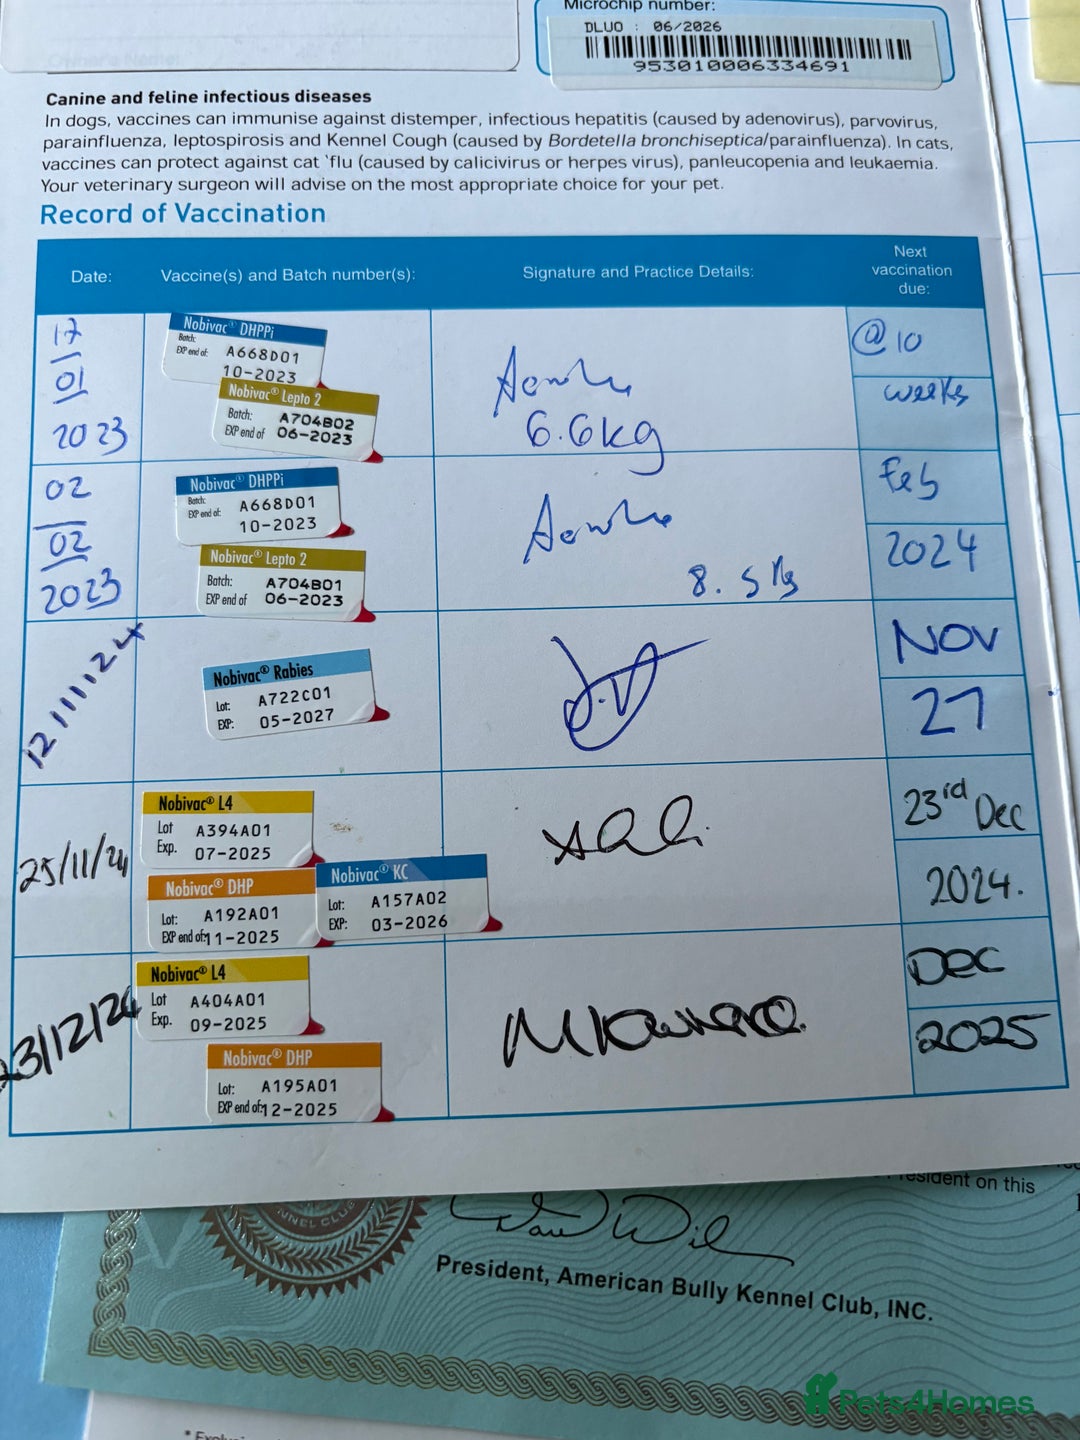 Microchip number:
DLUO : 06/2026
953010006334691
Owner's Name:
Canine and feline infectious diseases
In dogs, vaccines can immunise against distemper, infectious hepatitis (caused by adenovirus), parvovirus,
parainfluenza, leptospirosis and Kennel Cough (caused by Bordetella bronchiseptica/parainfluenza). In cats,
vaccines can protect against cat `flu (caused by calicivirus or herpes virus), panleucopenia and leukaemia.
Your veterinary surgeon will advise on the most appropriate choice for your pet.
Record of Vaccination
Date:
Vaccine(s) and Batch number(s):
Signature and Practice Details:
Next
vaccination
due:
17
01
2023
Nobivac® DHPPi
Batch: A668D01
EXP end of: 10-2023
Nobivac® Lepto 2
Batch: A704B02
EXP end of 06-2023
6.6kg
@ 10
weeks
02
02
2023
Nobivac® DHPPi
Batch: A668D01
EXP end of: 10-2023
Nobivac® Lepto 2
Batch: A704B01
EXP end of 06-2023
8.5kg
Feb
2024
12/11/24
Nobivac® Rabies
Lot: A722C01
EXP: 05-2027
NOV
27
25/11/24
Nobivac® L4
Lot A394A01
Exp. 07-2025
Nobivac® DHP
Lot: A192A01
EXP end of: 11-2025
Nobivac® KC
Lot: A157A02
EXP: 03-2026
23rd Dec
2024.
23/12/24
Nobivac® L4
Lot A404A01
Exp. 09-2025
Nobivac® DHP
Lot: A195A01
EXP end of: 12-2025
Dec
2025
President on this
KENNEL CLUB
President, American Bully Kennel Club, INC.
Pets4Homes